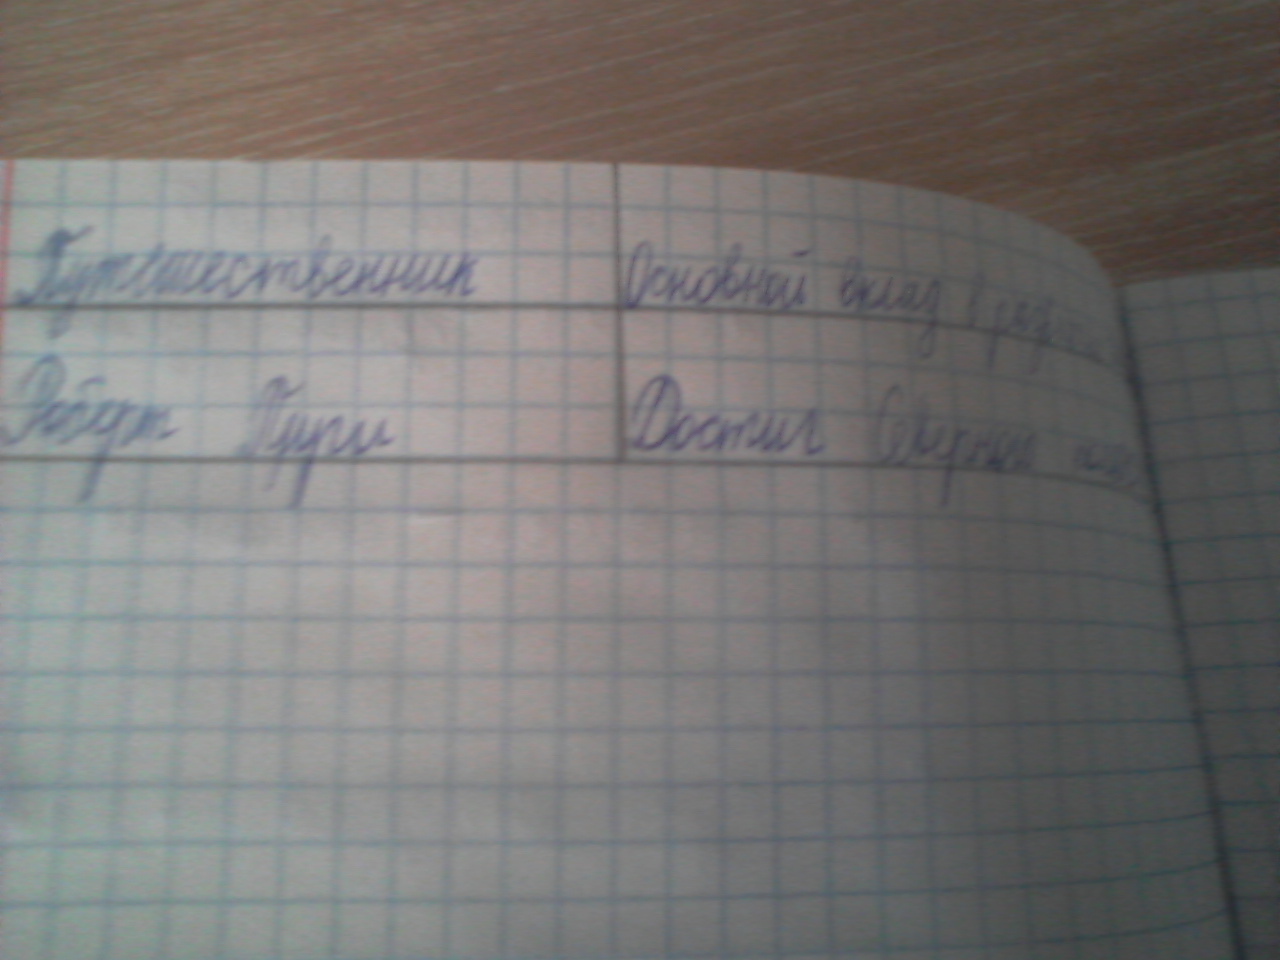 Путешественник Основной вклад в
Роберт Пири Достиг Северный